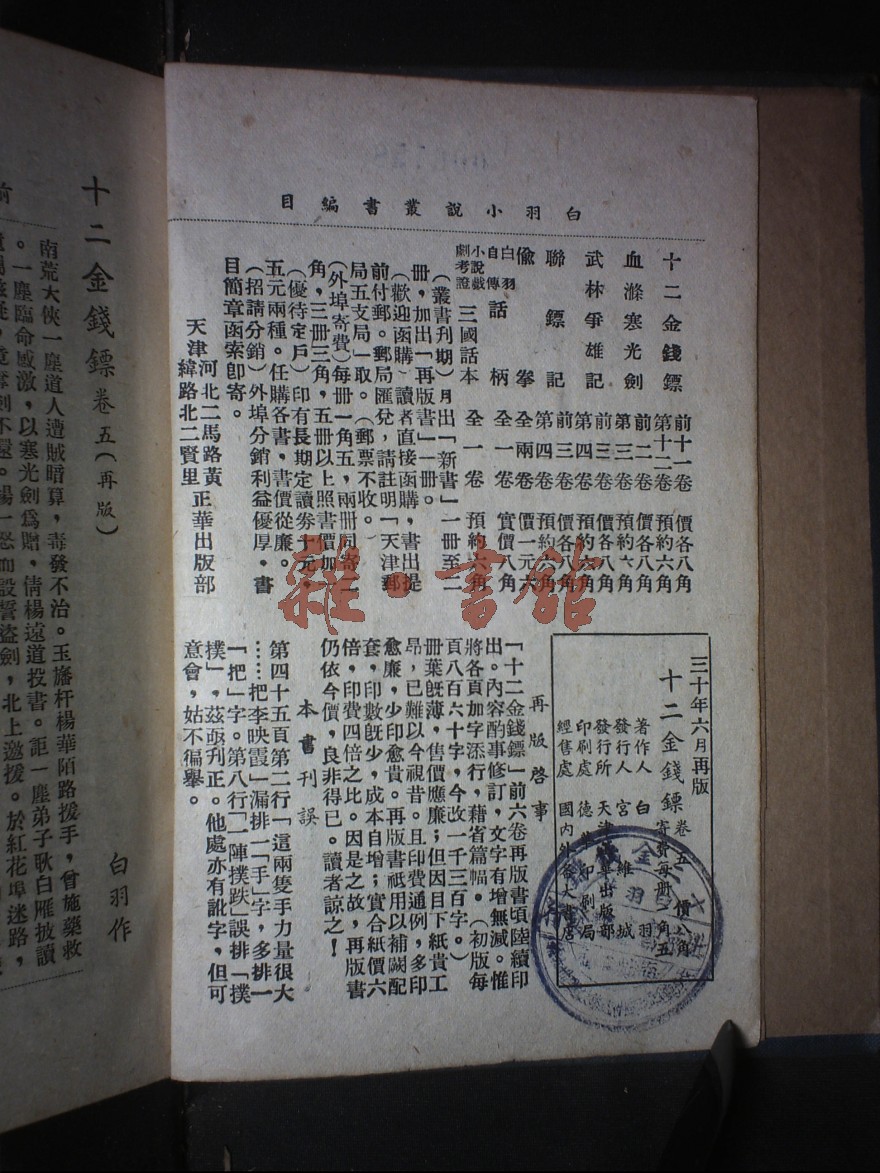 白羽小說叢書編目
十二金錢鏢 前十一卷 價各八角
第十二卷 預約六角
血滌寒光劍 前二卷 價各八角
第三卷 預約六角
武林爭雄記 前三卷 價各八角
第四卷 預約六角
聯鏢記 前三卷 價各八角
第四卷 預約六角
偷拳 全兩卷 價一元六
白羽自傳 話柄 全一卷 實價八角
小說戲劇考證 三國話本 全一卷 預約六角
(叢書刊期)月出「新書」一冊至二
冊,加出「再版書」一冊。
(歡迎函購)讀者直接函購,書出提
前付郵。郵局匯兌,請註明「天津郵
局五支局」取。(郵票不收。)
(外埠寄費)每冊一角五,兩冊同寄二
角,三冊三角,五冊以上照書價加一
(優待定戶)印有長期定讀券十元,
五元兩種。任購各書,書價從廉。
(招請分銷)外埠分銷利益優厚,書
目簡章函索卽寄。
天津河北二馬路黃緯路北二賢里 正華出版部
三十年六月再版
十二金錢鏢 卷五 價八角
寄費每冊一角五
著作人 白羽
發行人 宮維城
發行所 天津 出版部
印刷處 德 印刷局
經售處 國內外各大書店
再版啓事
「十二金錢鏢」前六卷再版書頃陸續印
出。內容酌事修訂,文字有增無減。惟
將各頁加字添行,藉省篇幅。(初版每
頁八百六十字,今改一千三百字。)
冊葉旣薄,售價應廉;但因目下紙貴工
昂,已難以今視昔。且印費通例,多印
愈廉,少印愈貴。再版書祇用以補闕配
套,印數旣少,成本自增;實合紙價六
倍,印費四倍之比。因是之故,再版書
仍依今價,良非得已。讀者諒之!
本書刊誤
第四十五頁第二行「這兩隻手力量很大
……把李映霞」漏排一「手」字,多排一
「把」字。第八行「一陣撲跌」誤排「撲
撲」,茲亟刋正。他處亦有訛字,但可
意會,姑不徧舉。
十二金錢鏢 卷五(再版)
白羽作
南荒大俠一塵道人遭賊暗算,毒發不治。玉旛杆楊華陌路援手,曾施藥救
。一塵臨命感激,以寒光劍爲贈,倩楊遠道投書。詎一塵弟子耿白雁披讀
劍不還。楊一怒而設誓盜劍,北上邀援。於紅花埠迷路,
雜·書館